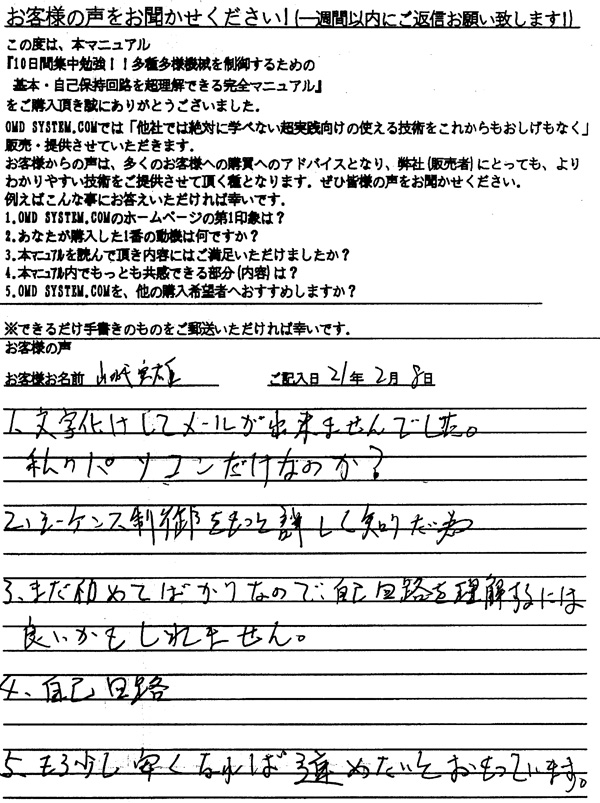 お客様の声をお聞かせください!(一週間以内にご返信お願い致します!)
この度は、本マニュアル
『10日間集中勉強!!多種多様機械を制御するための
基本・自己保持回路を超理解できる完全マニュアル』
をご購入頂き誠にありがとうございました。
OMD SYSTEM.COMでは「他社では絶対に学べない超実践向けの使える技術をこれからもおしげもなく」
販売・提供させていただきます。
お客様からの声は、多くのお客様への購買へのアドバイスとなり、弊社(販売者)にとっても、より
わかりやすい技術をご提供させて頂く種となります。ぜひ皆様の声をお聞かせください。
例えばこんな事にお答えいただければ幸いです。
1.OMD SYSTEM.COMのホームページの第1印象は?
2.あなたが購入した1番の動機は何ですか?
3.本マニュアルを読んで頂き内容にはご満足いただけましたか?
4.本マニュアル内でもっとも共感できる部分(内容)は?
5.OMD SYSTEM.COMを、他の購入希望者へおすすめしますか?
※できるだけ手書きのものをご郵送いただければ幸いです。
お客様の声
お客様お名前 ご記入日 21年2月8日
1、文字化けしてメールが出来ませんでした。
私のパソコンだけなのか?
2、シーケンス制御をもっと詳しく知りた
3、まだ初めてばかりなので、自己回路を理解するには
良いかもしれません。
4、自己回路
5、もう少し安くなれば進めたいとおもっています。